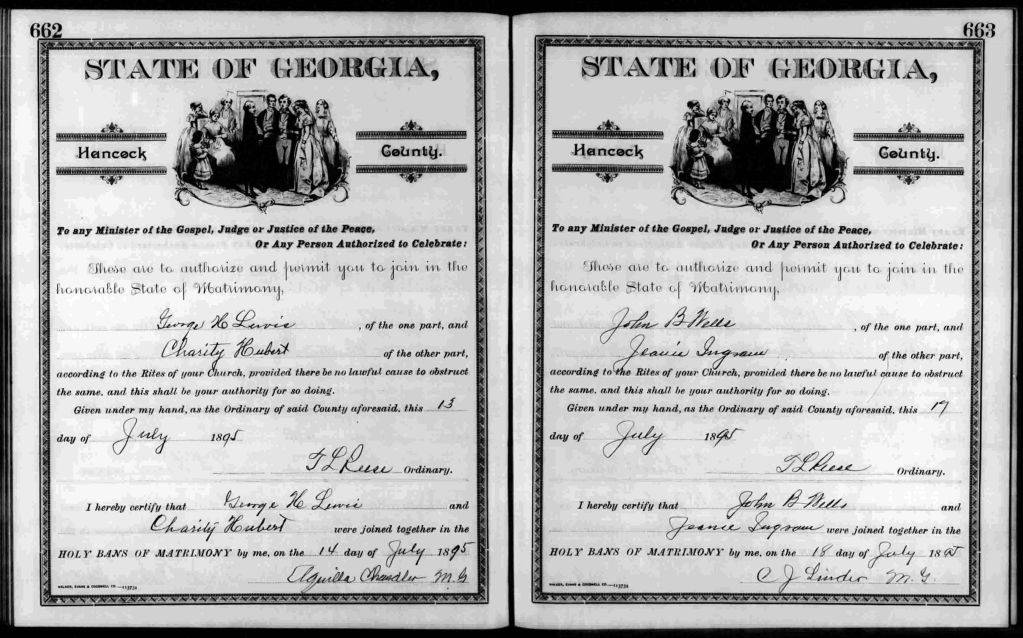 662
STATE OF GEORGIA,
Hancock County.
To any Minister of the Gospel, Judge or Justice of the Peace,
Or Any Person Authorized to Celebrate:
These are to authorize and permit you to join in the
honorable State of Matrimony,
George H Lewis, of the one part, and
Charity Hubert of the other part,
according to the Rites of your Church, provided there be no lawful cause to obstruct
the same, and this shall be your authority for so doing.
Given under my hand, as the Ordinary of said County aforesaid, this 13
day of July 1895
T L Reese Ordinary.
I hereby certify that George H Lewis and
Charity Hubert were joined together in the
HOLY BANS OF MATRIMONY by me, on the 14 day of July 1895
Aquilla Chandler M.G
663
STATE OF GEORGIA,
Hancock County.
To any Minister of the Gospel, Judge or Justice of the Peace,
Or Any Person Authorized to Celebrate:
These are to authorize and permit you to join in the
honorable State of Matrimony,
John B Wells, of the one part, and
Jeanie Ingram of the other part,
according to the Rites of your Church, provided there be no lawful cause to obstruct
the same, and this shall be your authority for so doing.
Given under my hand, as the Ordinary of said County aforesaid, this 17
day of July 1895
T L Reese Ordinary.
I hereby certify that John B Wells and
Jeanie Ingram were joined together in the
HOLY BANS OF MATRIMONY by me, on the 18 day of July 1895
C J Linder M.G.